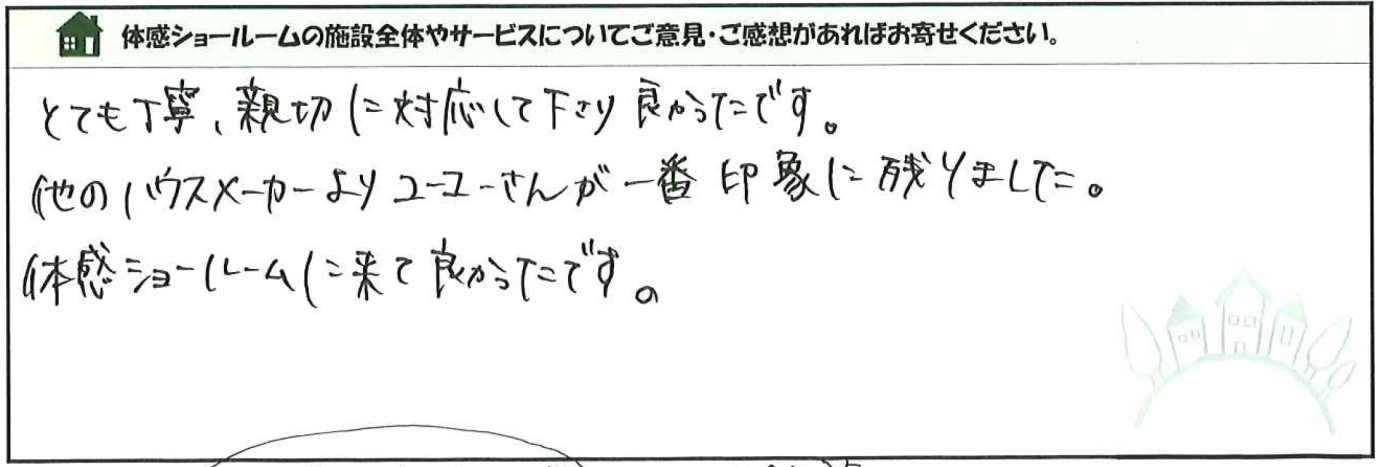 体感ショールームの施設全体やサービスについてご意見・ご感想があればお寄せください。
とても丁寧、親切に対応して下さり良かったです。
他のハウスメーカーよりユーユーさんが一番印象に残りました。
体感ショールームに来て良かったです。